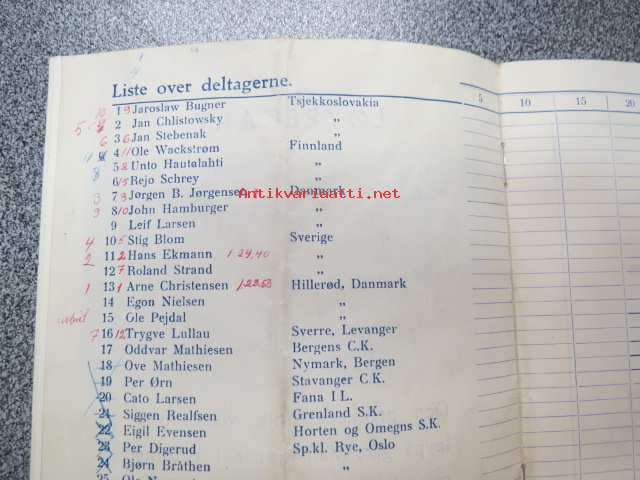 Liste over deltagerne.
5 10 15 20
10 1 9 Jaroslaw Bugner Tsjekkoslovakia
2 Jan Chlistowsky „
6 3 6 Jan Stebenak „
4 11 Ole Wackstrøm Finnland
8 5 2 Unto Hautalahti „
6 Rejo Schrey „
3 7 3 Jørgen B. Jørgensen Danmark
Antikvariaatti.net
9 8 10 John Hamburger „
9 Leif Larsen „
4 10 5 Stig Blom Sverige
2 11 2 Hans Ekmann 1.24,40 „
12 7 Roland Strand „
1 13 1 Arne Christensen 1.22.53 Hillerød, Danmark
14 Egon Nielsen „
15 Gle Pejdal „
7 16 12 Trygve Lullau Sverre, Levanger
17 Oddvar Mathiesen Bergens C.K.
18 Ove Mathiesen Nymark, Bergen
19 Per Ørn Stavanger C.K.
20 Cato Larsen Fana I L.
21 Siggen Realfsen Grenland S.K.
22 Eigil Evensen Horten og Omegns S.K.
23 Per Digerud Sp.kl. Rye, Oslo
24 Bjørn Bråthen „
25